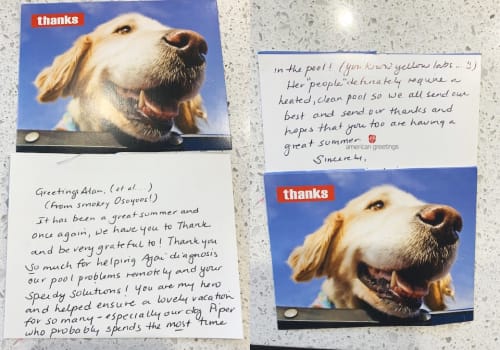 thanks
Greetings Alan, (et al....)
(from smokey Osoyoos!)
It has been a great summer and
once again, we have you to Thank
and be very grateful to! Thank you
So much for helping Again diagnosis
our pool problems remotely and your
Speedy Solutions! You are my hero
and helped ensure a lovely vacation
for so many - especially our dog Piper
who probably spends the most time
in the pool! (you know yellow labs... :))
Her "people" definately require a
heated, clean pool so we all send our
best and send our thanks and
hopes that you too are having a
great summer
american greetings
Sincerely,
thanks